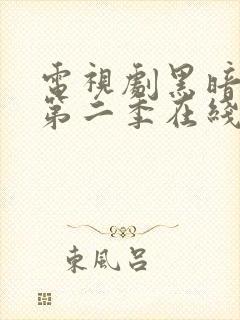 電視劇黑暗
第二季在綫
東風呂